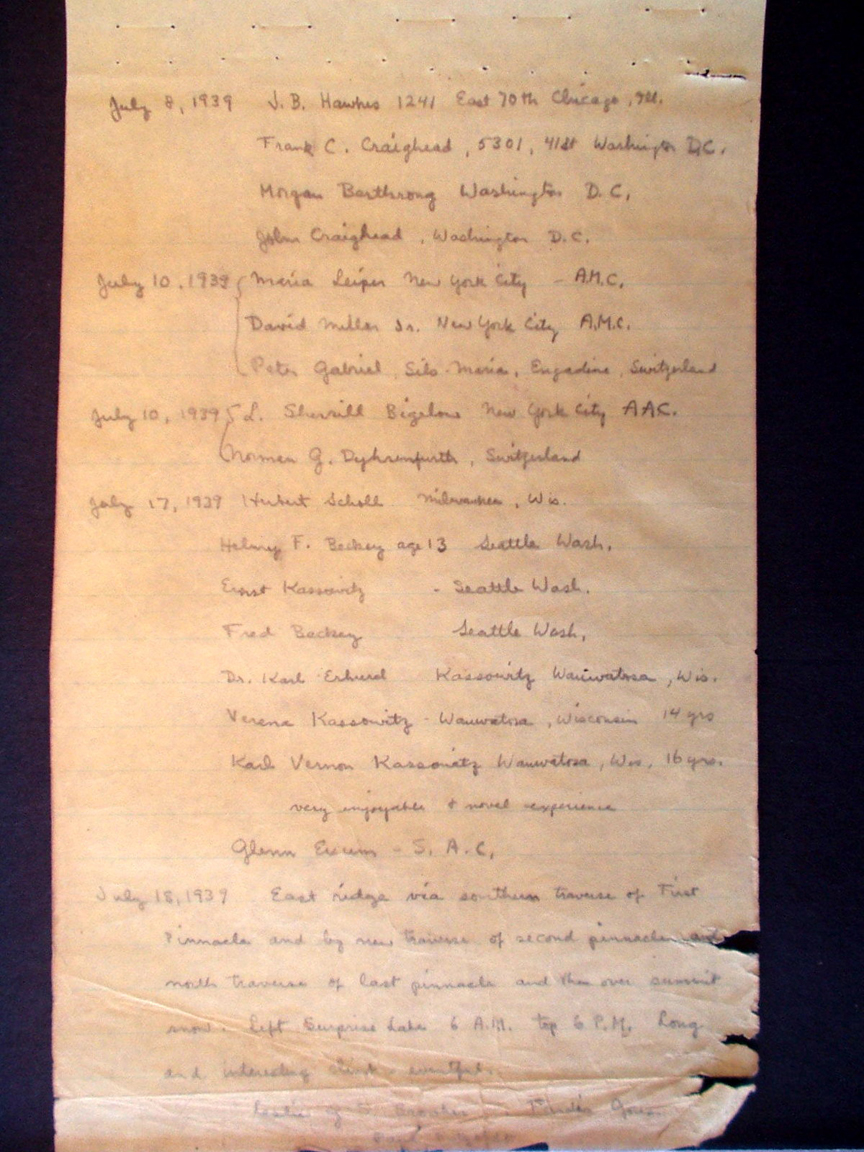 July 8, 1939 J. B. Hawkes 1241 East 70th Chicago, Ill.
Frank C. Craighead, 5301, 41st Washington D.C.
Morgan Berthrong Washington D.C.
John Craighead, Washington D.C.
July 10, 1939 Maria Leiper New York City - A.M.C.
David Millar Jr. New York City A.M.C.
Peter Gabriel, Sils-Maria, Engadine, Switzerland
July 10, 1939 L. Sherrill Bigelow New York City AAC.
Norman G. Dyhrenfurth, Switzerland
July 17, 1939 Herbert Scholl Milwaukee, Wis.
Helmy F. Beckey age 13 Seattle Wash.
Ernst Kassowitz - Seattle Wash.
Fred Beckey Seattle Wash.
Dr. Karl Erhard Kassowitz Wauwatosa, Wis.
Verena Kassowitz - Wauwatosa, Wisconsin 14 yrs
Karl Vernon Kassowitz Wauwatosa, Wis. 16 yrs.
very enjoyable & novel experience
Glenn Exum - S. A. C.
July 18, 1939 East ridge via southern traverse of First
Pinnacle and by new traverse of second pinnacle and
north traverse of last pinnacle and then over summit
snow. Left Surprise Lake 6 A.M. top 6 P.M. Long
and interesting climb - eventful.